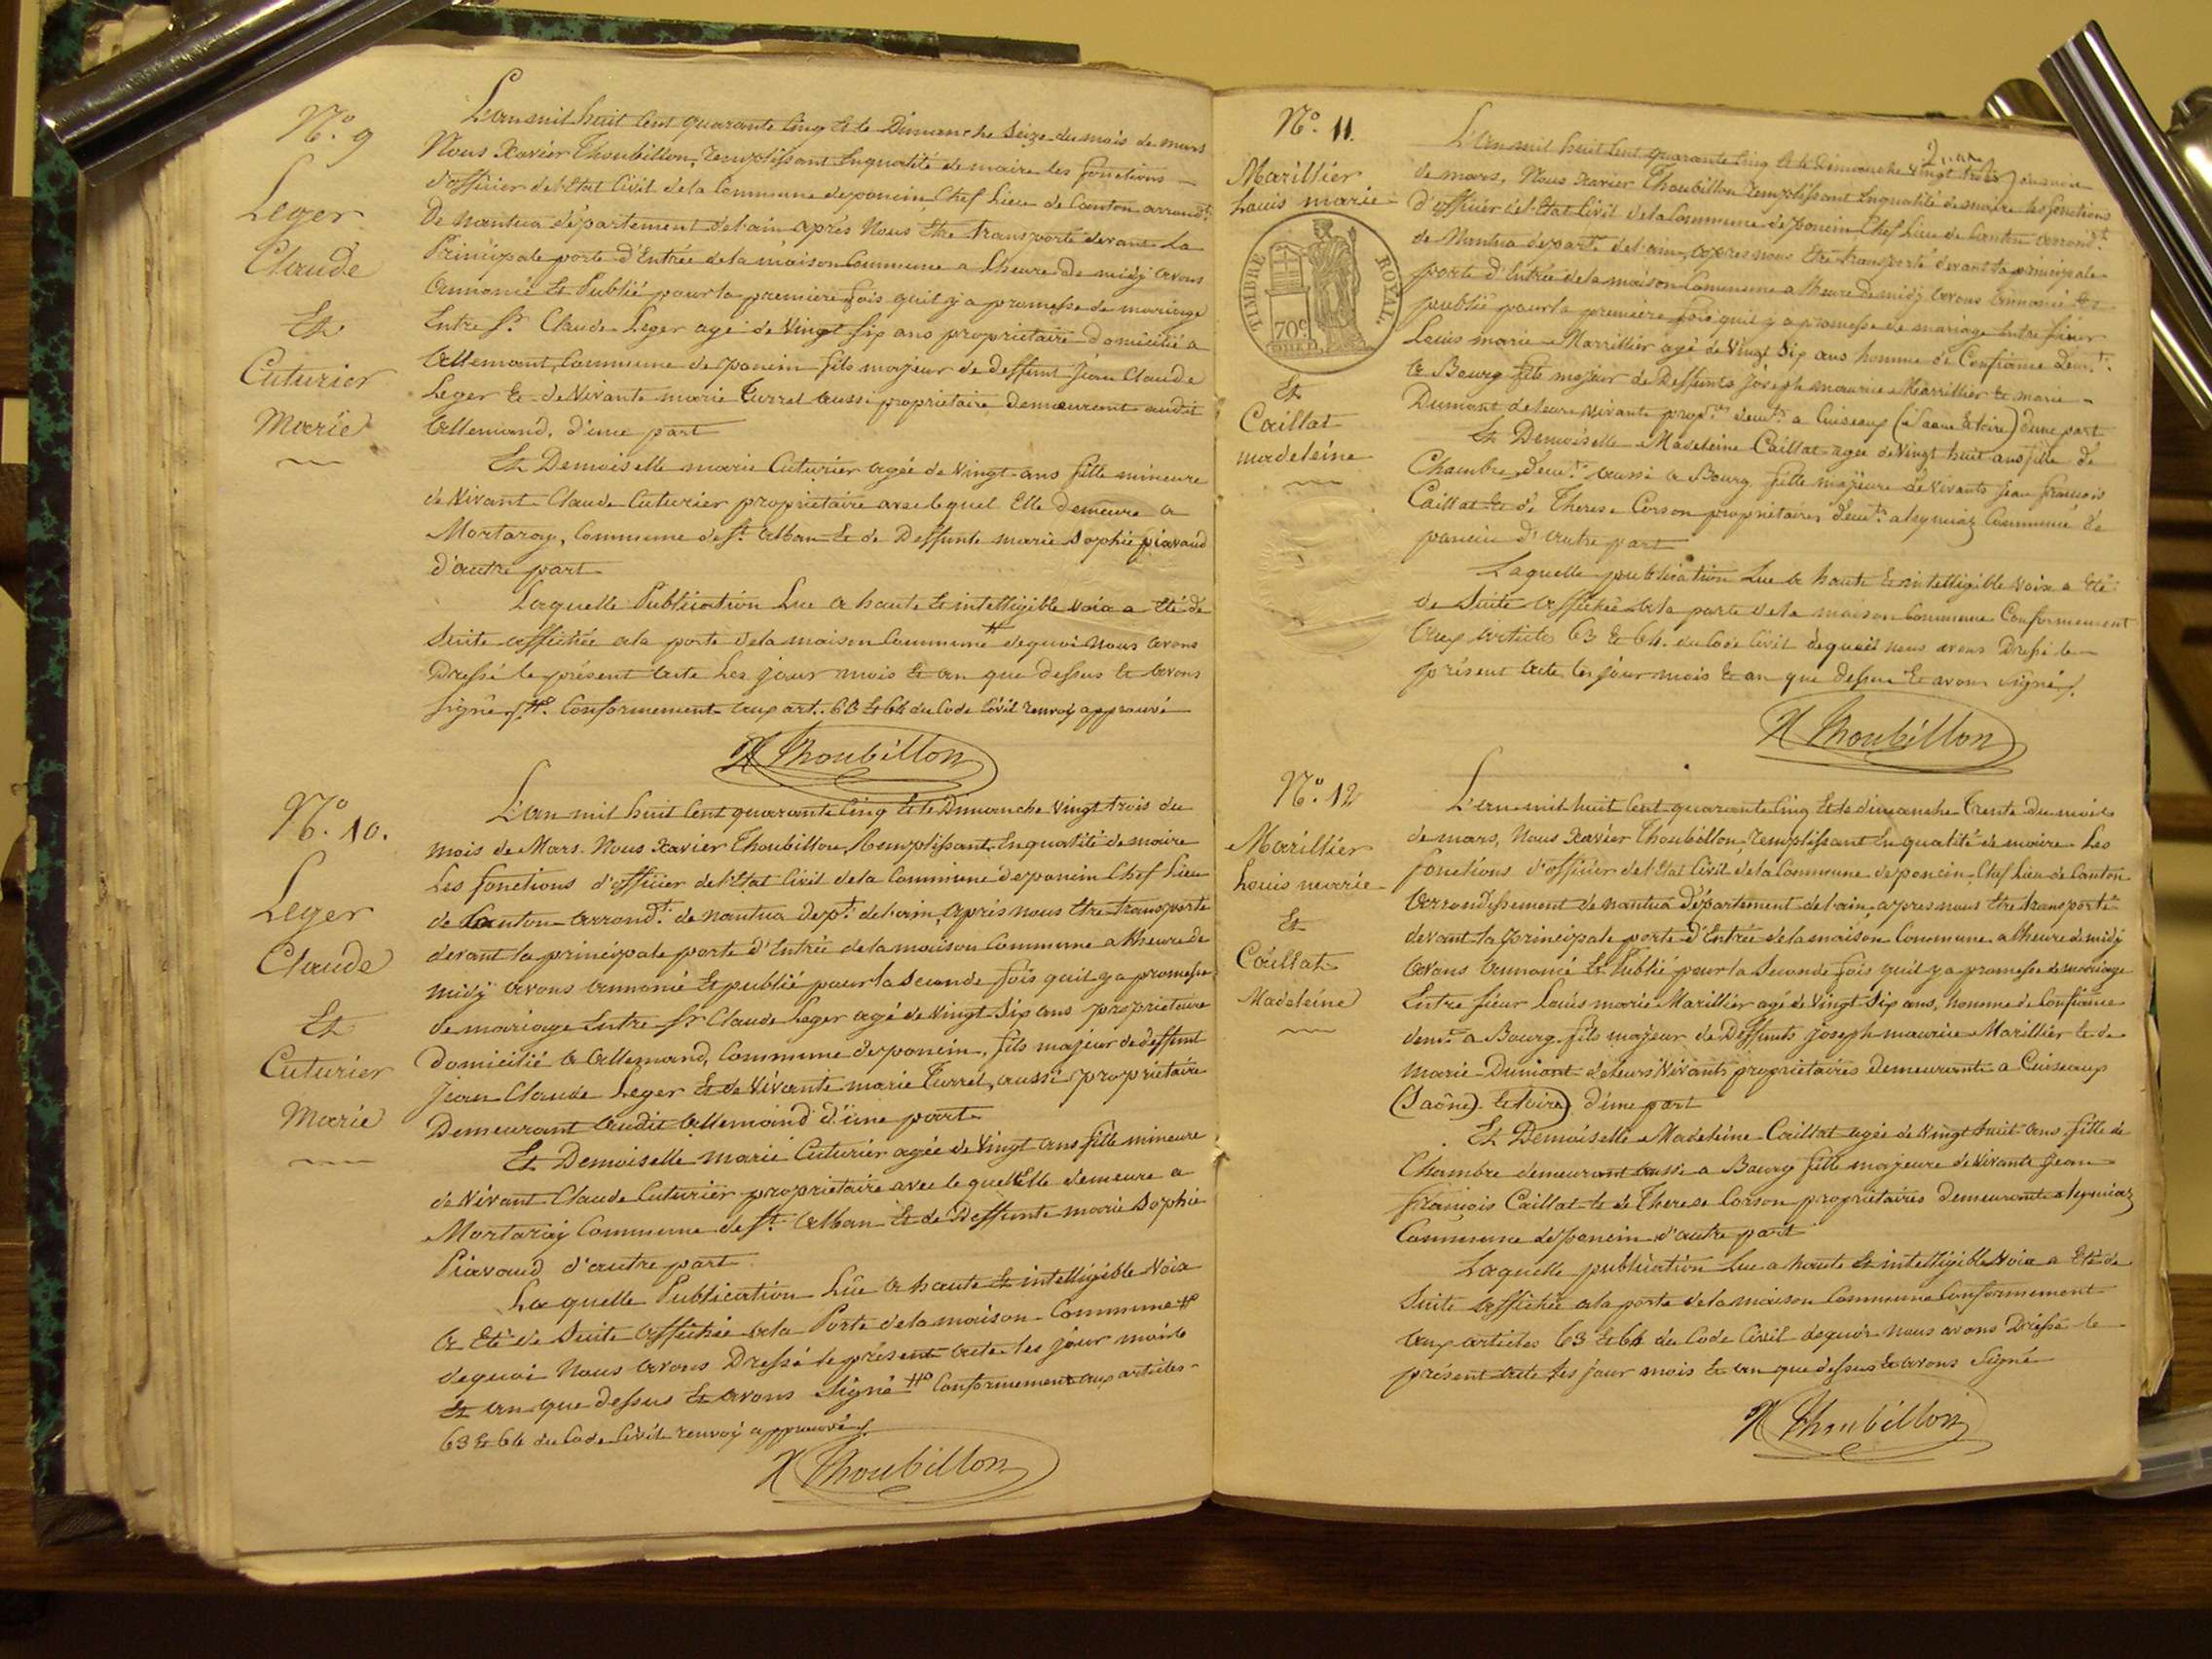 N.o 9
Leger
Claude
Et
Cuturier
Marie
L'an mil huit Cent quarante Cinq Et le Dimanche Seize du mois de mars
Nous Xavier Thoubillon, remplissant En qualité de maire les fonctions
d'officier de l'Etat Civil de la Commune de poncin Chef Lieu de Canton arrond.t
De nantua département de l'ain après Nous Etre transporté devant La
Principale porte d'Entrée de la maison Commune a l'heure de midy avons
Annoncé Et Publié pour la premiere fois qu'il y a promesse de mariage
Entre S.r Claude Leger agé de Vingt Six ans proprietaire domicilié a
Allemant, Commune de poncin fils majeur de deffunt Jean Claude
Leger Et de Vivante marie Turrel aussi propriétaire demeurant audit
Allemand, d'une part
Et Demoiselle marie Cuturier agée de Vingt ans fille mineure
de Vivant Claude Cuturier propriétaire avec lequel Elle demeure a
Mortaray, Commune de S.t Alban Et de Deffunte marie Sophie piavaud
d'autre part
Laquelle Publication Lue a haute Et intelligible voix a Eté de
Suite affichée a la porte de la maison Commune # de quoi Nous avons
Dressé le présent acte Les jour mois Et an que dessus Et avons
Signé #. Conformement aux art. 63 Et 64 du Code Civil renvoy approuvé
X Thoubillon
N.o 10.
Leger
Claude
Et
Cuturier
Marie
L'an mil huit Cent quarante Cinq Et le Dimanche Vingt trois du
mois de Mars. Nous Xavier Thoubillon, Remplissant En qualité de maire
Les fonctions d'officier de l'Etat Civil de la Commune de poncin Chef Lieu
de Canton arrond.t de nantua dep.t de l'ain, Après nous Etre transporté
devant la principale porte d'Entrée de la maison Commune a l'heure de
midy avons annoncé Et publié pour la Seconde fois qu'il y a promesse
de mariage Entre S.r Claude Leger agé de Vingt Six ans proprietaire
Domicilié a Allemand, Commune de poncin, fils majeur de deffunt
Jean Claude Leger Et de Vivante marie Turrel, aussi propriétaire
Demeurant audit Allemand d'une part
Et Demoiselle marie Cuturier agée de Vingt ans fille mineure
de Vivant Claude Cuturier propriétaire avec lequel Elle demeure a
Mortaray Commune de S.t Alban Et de Deffunte marie Sophie
Piavaud d'autre part
Laquelle Publication Lue a haute Et intelligible Voix
a Eté de Suite affichée a la Porte de la maison Commune #
de quoi Nous avons Dressé le présent acte les jour mois
Et an que dessus Et avons Signé # Conformement aux articles
63 Et 64 du Code Civil renvoy approuvé
X Thoubillon
N.o 11.
Marillier
Louis marie
TIMBRE ROYAL.
70c
Et
Caillat
madeleine
L'an mil huit Cent quarante Cinq Et le Dimanche Vingt trois du mois
de mars, Nous Xavier Thoubillon remplissant En qualité de maire les fonctions
d'officier de l'Etat Civil de la Commune de poncin Chef Lieu de Canton arrond.t
de Nantua depart.t de l'ain, après nous Etre transporté devant la principale
porte d'Entrée de la maison Commune a l'heure de midy avons annoncé Et
publié pour la premiere fois qu'il y a promesse de mariage Entre Sieur
Louis marie Marrillier agé de Vingt Six ans homme de Confiance dem.t
a Bourg fils majeur de Deffunts joseph maurice Marrillier Et marie
Dumont de leurs vivants prop.res dem.ts a Cuiseaux (Saone Et Loire) d'une part
Et Demoiselle Madeleine Caillat agée de Vingt huit ans fille de
Chambre dem.t aussi a Bourg fille majeure de Vivants Jean françois
Caillat Et de Therese Corson propriétaires dem.ts a leymiaz Commune de
poncin d'autre part
Laquelle publication Lue a haute Et intelligible Voix a Eté
de Suite affichée a la porte de la maison Commune Conformement
aux articles 63 Et 64. du Code Civil de quoi nous avons Dressé le
présent acte les jour mois Et an que dessus Et avons signé
X Thoubillon
N.o 12
Marillier
Louis marie
Et
Caillat
Madeleine
L'an mil huit Cent quarante Cinq Et le dimanche Trente du mois
de mars, Nous Xavier Thoubillon, remplissant En qualité de maire Les
fonctions d'officier de l'Etat Civil de la Commune de poncin, Chef Lieu de Canton
Arrondissement de nantua département de l'ain, apres nous Etre transporté
devant la principale porte d'Entrée de la maison Commune a l'heure de midy
avons annoncé Et Publié pour la Seconde fois qu'il y a promesse de mariage
Entre Sieur Louis marie Marillier agé de Vingt Six ans, homme de Confiance
dem.t a Bourg fils majeur de Deffunts joseph maurice Marillier Et de
marie Dumont de leurs Vivants propriétaires Demeurants a Cuiseaux
(Saône Et Loire) d'une part
Et Demoiselle Madeleine Caillat agée de Vingt huit ans fille de
Chambre demeurant aussi a Bourg fille majeure de Vivants Jean
françois Caillat Et de Therese Corson propriétaires Demeurants a leymiaz
Commune de poncin d'autre part
Laquelle publication Lue a haute Et intelligible Voix a Eté de
Suite affichée a la porte de la maison Commune Conformement
aux articles 63 Et 64 du Code Civil de quoi nous avons Dréssé le
présent acte Les jour mois Et an que dessus Et avons Signé
X Thoubillon